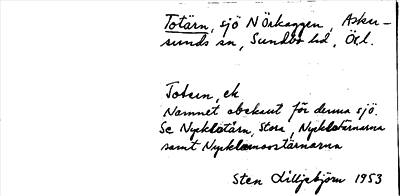 Totärn, sjö N Örkaggen, Asker-
sunds sn, Sundbo hd, Öcl.
Totarn, ek
Namnet obekant för denna sjö.
Se Nycklatärn, Stora, Nycklatärnarna
samt Nycklamosstärnarna
Sten Lilljebjörn 1953